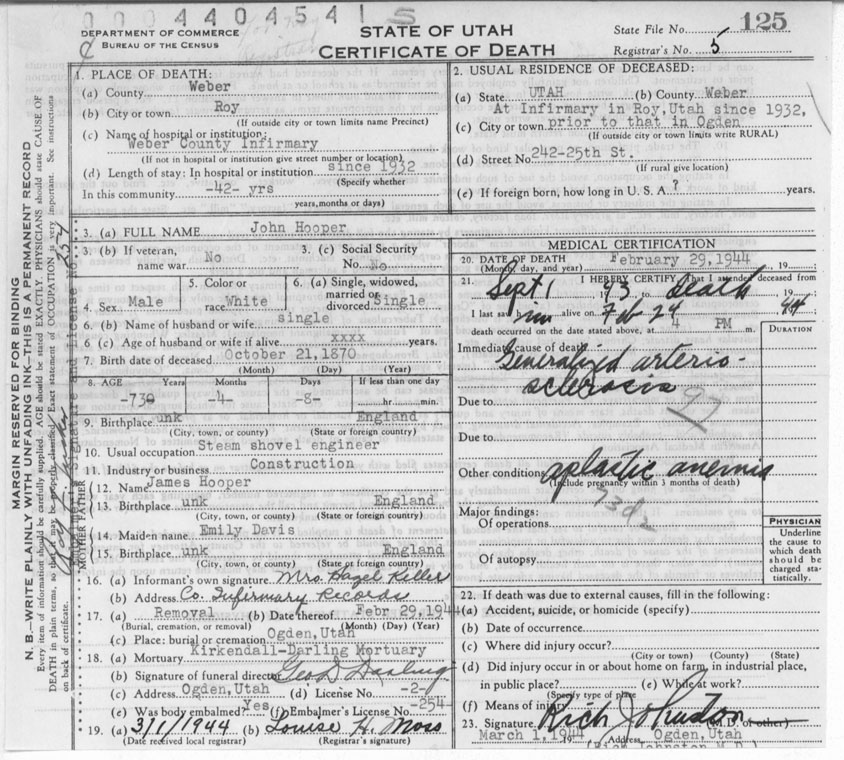 0 0 0 4 4 0 4 5 4 1 S
125
DEPARTMENT OF COMMERCE
BUREAU OF THE CENSUS
STATE OF UTAH
CERTIFICATE OF DEATH
State File No.
Registrar's No. 5
MARGIN RESERVED FOR BINDING
N. B.—WRITE PLAINLY WITH UNFADING INK—THIS IS A PERMANENT RECORD
Every item of information should be carefully supplied. AGE should be stated EXACTLY. PHYSICIANS should state CAUSE OF
DEATH in plain terms, so that it may be properly classified. Exact statement of OCCUPATION is very important. See instructions
on back of certificate.
Signature and License No. 254
1. PLACE OF DEATH:
(a) County Weber
(b) City or town Roy
(If outside city or town limits name Precinct)
(c) Name of hospital or institution:
Weber County Infirmary
(If not in hospital or institution give street number or location)
(d) Length of stay: In hospital or institution since 1932
(Specify whether
In this community -42- yrs
years, months or days)
2. USUAL RESIDENCE OF DECEASED:
(a) State UTAH (b) County Weber
At Infirmary in Roy, Utah since 1932,
(c) City or town prior to that in Ogden
(If outside city or town limits write RURAL)
(d) Street No. 242-25th St.
(If rural give location)
(e) If foreign born, how long in U. S. A.? years.
3. (a) FULL NAME John Hooper
3. (b) If veteran,
name war No
3. (c) Social Security
No. No
4. Sex Male
5. Color or
race White
6. (a) Single, widowed,
married or
divorced Single
6. (b) Name of husband or wife single
6 (c) Age of husband or wife if alive xxxx years.
7. Birth date of deceased October 21, 1870
(Month) (Day) (Year)
8. AGE Years Months Days If less than one day
-73- -4- -8- hr. min.
9. Birthplace unk England
(City, town, or county) (State or foreign country)
10. Usual occupation Steam shovel engineer
11. Industry or business Construction
FATHER
12. Name James Hooper
13. Birthplace unk England
(City, town, or county) (State or foreign country)
MOTHER
14. Maiden name Emily Davis
15. Birthplace unk England
(City, town, or county) (State or foreign country)
16. (a) Informant's own signature Mrs. Hazel Keller
(b) Address Co. Infirmary Records
17. (a) Removal (b) Date thereof Febr 29, 1944
(Burial, cremation, or removal) (Month) (Day) (Year)
(c) Place: burial or cremation Ogden, Utah
18. (a) Mortuary Kirkendall-Darling Mortuary
(b) Signature of funeral director Geo D Darling
(c) Address Ogden, Utah (d) License No. -2-
(e) Was body embalmed? Yes (f) Embalmer's License No. -254-
19. (a) 3/1/1944 (b) Louise H. Moss
(Date received local registrar) (Registrar's signature)
MEDICAL CERTIFICATION
20. DATE OF DEATH February 29, 1944
(Month, day, and year) 19
21. I HEREBY CERTIFY That I attended deceased from
Sept 1 1943 to Death 19 44
I last saw him alive on Feb 29 19
death occurred on the date stated above, at 4 PM m.
DURATION
Immediate cause of death
Generalized arterio-
sclerosis
97
Due to
Due to
Other conditions aplastic anemia
(Include pregnancy within 3 months of death)
73d2
Major findings:
Of operations
Of autopsy
PHYSICIAN
Underline
the cause to
which death
should be
charged sta-
tistically.
22. If death was due to external causes, fill in the following:
(a) Accident, suicide, or homicide (specify)
(b) Date of occurrence
(c) Where did injury occur?
(City or town) (County) (State)
(d) Did injury occur in or about home on farm, in industrial place,
in public place? (e) While at work?
(Specify type of place
(f) Means of injury
23. Signature Rich Johnston (M. D. or other)
March 1, 1944 19 Address Ogden, Utah
(Rich Johnston M.D.)